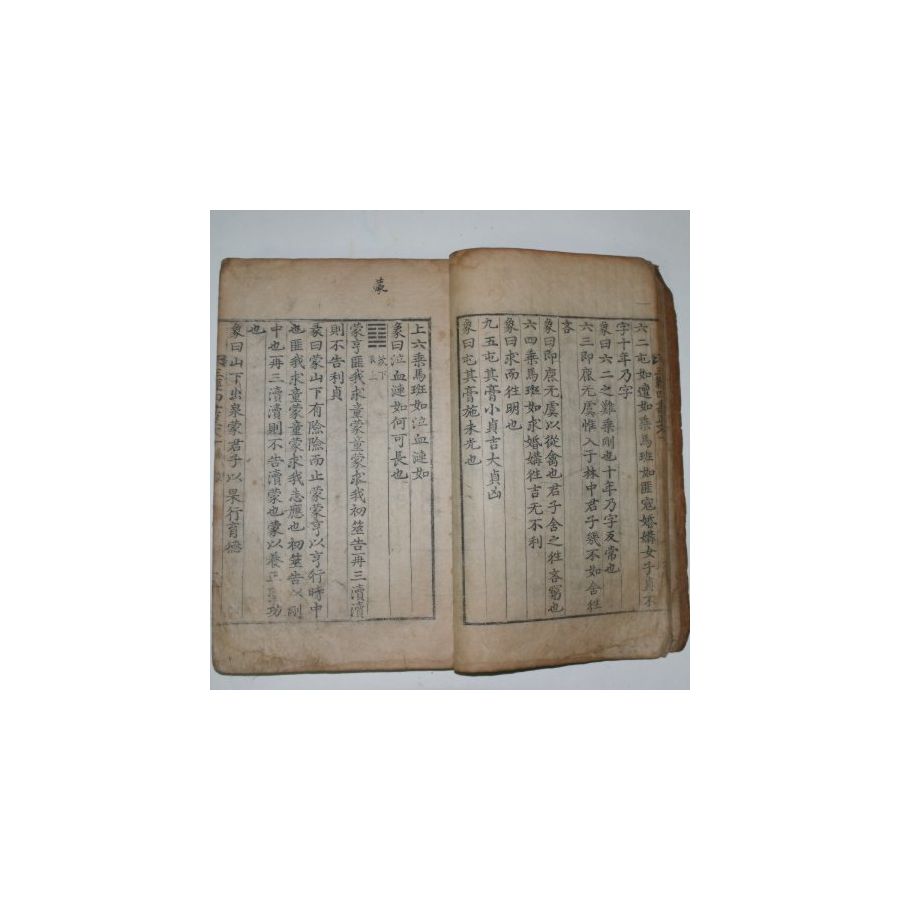 六二屯如邅如乘馬班如匪寇婚媾女子貞不
字十年乃字
象曰六二之難乘剛也十年乃字反常也
六三即鹿无虞惟入于林中君子幾不如舍往
吝
象曰即鹿无虞以從禽也君子舍之往吝窮也
六四乘馬班如求婚媾往吉无不利
象曰求而往明也
九五屯其膏小貞吉大貞凶
象曰屯其膏施未光也
蒙
上六乘馬班如泣血漣如
象曰泣血漣如何可長也
䷃坎下艮上
蒙亨匪我求童蒙童蒙求我初筮告再三瀆瀆
則不告利貞
彖曰蒙山下有險險而止蒙蒙亨以亨行時中
也匪我求童蒙童蒙求我志應也初筮告以剛
中也再三瀆瀆則不告瀆蒙也蒙以養正聖功
也
象曰山下出泉蒙君子以果行育德